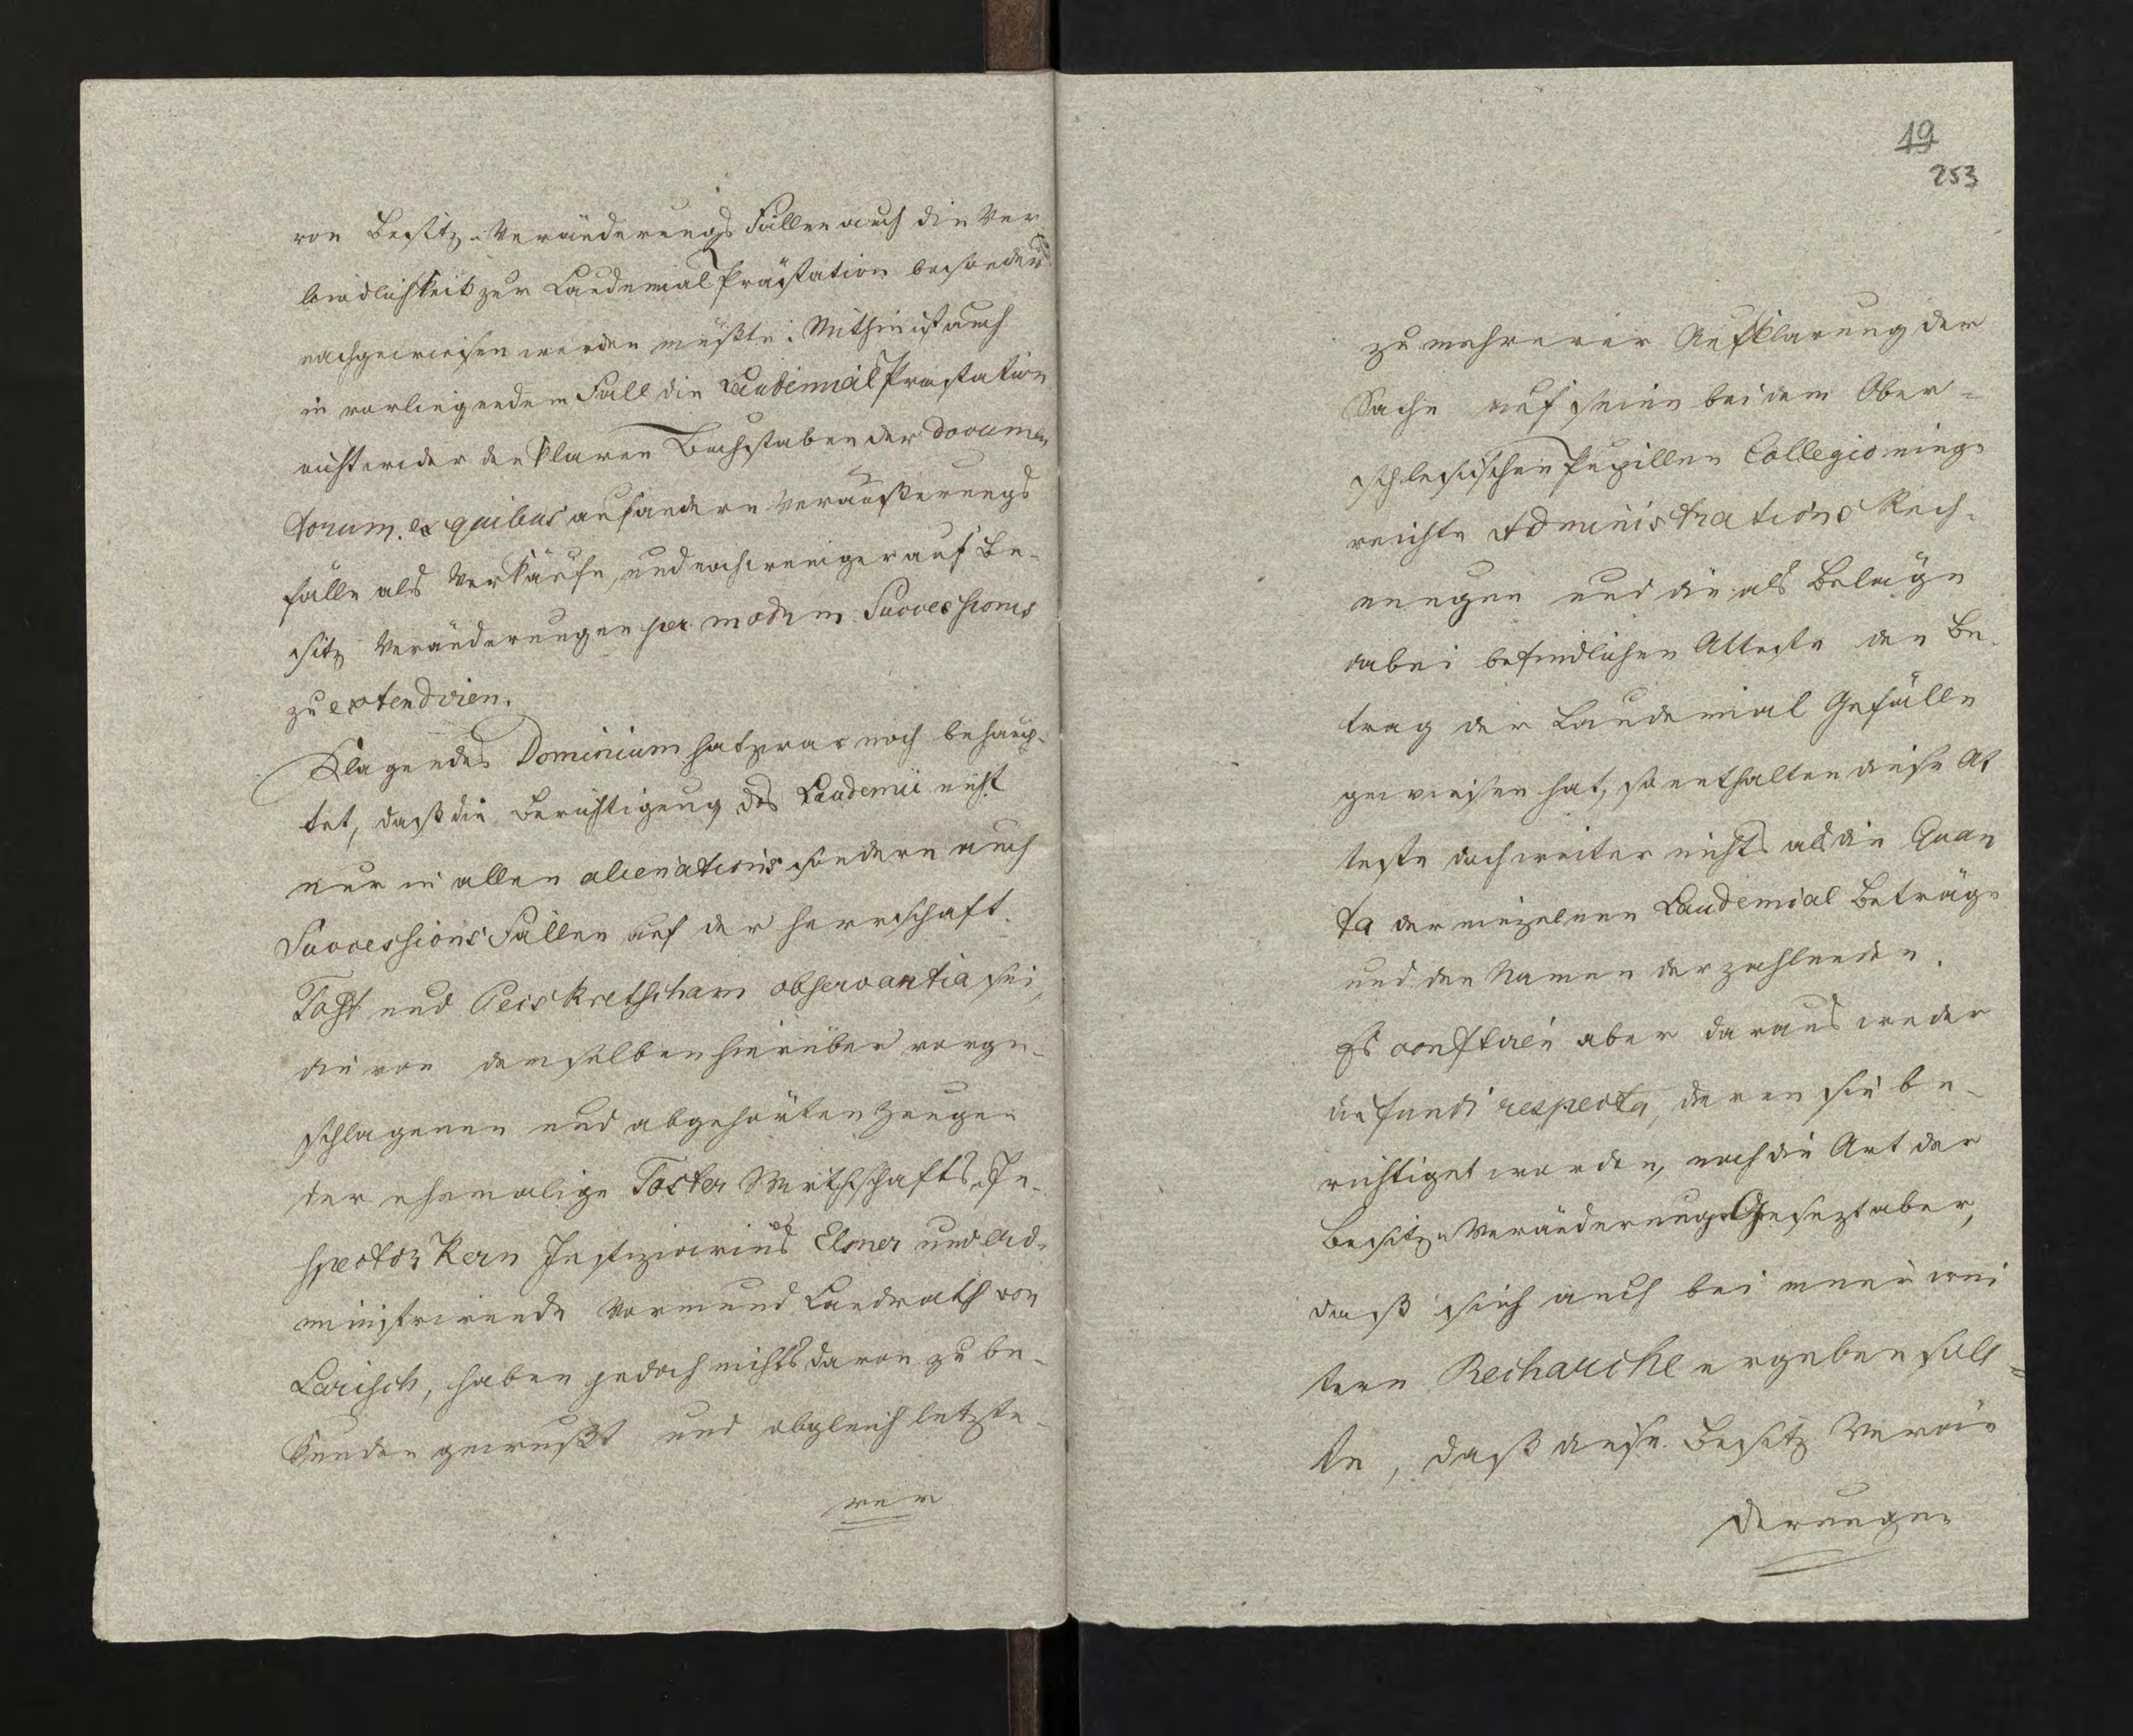 von Besitz-Veränderungs Fällen auch die Ver-
bindlichkeit zur Laudemial Prästation besonders
nachgewiesen werden müßte: Mithin ist auch
in vorliegendem Fall die Laudemial Prästation
nicht wider den klaren Buchstaben der documen
torum ex quibus auf andere Veräußerungs
fälle als Verkäufe, und noch weniger auf Be-
sitz Veränderungen per modum Successionis
zu extendiren.
Klagendes Dominium hat zwar noch behaup-
tet, daß die Berichtigung des Laudemii nicht
nur in allen alienations sondern auch
Successions Fällen auf der Herrschaft
Tost und Peiskretscham observantia sei,
die von demselben hierüber vorge-
schlagenen und abgehörten Zeugen
der ehemalige Toster Wirthschafts-In-
spector Kern Justiziarius Elsner und ad-
ministrirende Vormund Landrath von
Larisch, haben jedoch nichts davon zu be-
kunden gewußt und obgleich letzte-
rer
19
253
zu mehrerer Aufklärung der
Sache auf seine bei dem Ober-
schlesischen Pupillen Collegio einge
reichte Administrations Rech-
nungen und die als Beläge
dabei befindlichen Atteste den Be-
trag der Laudemial Gefälle
gewiesen hat, so enthalten diese At
teste doch weiter nichts als die Quan
ta der einzelnen Laudemial Beträge
und den Namen der zahlenden.
Es constiren aber daraus weder
die fundi respectu, deren sie be-
richtiget worden, noch die Art der
Besitz-Veränderung. Gesezt aber,
daß sich auch bei einer wei
tern Recharche ergeben soll-
te, daß diese Besitz Verän
derungen